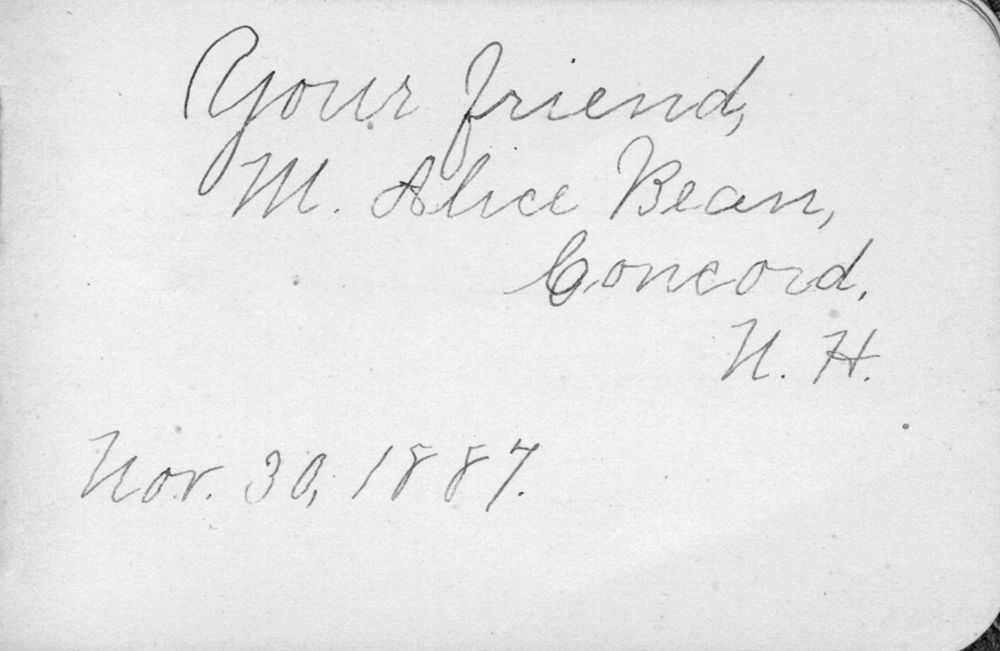 Your friend,
M. Alice Bean,
Concord,
N. H.
Nov. 30, 1887.